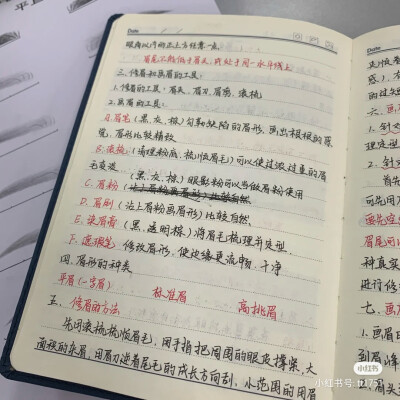 Date
眼角以外的正上方位置一点.
眉尾不能低于眉头,终处于同一水平线上
三、修眉和画眉的工具:
1.修眉的工具:眉夹、眉刀、眉剪、滚梳
2.画眉的工具:
A.眉笔(黑、灰、棕)勾勒缺陷的眉形,画出根根的
觉,眉形比较精致
B.滚梳(清理粉底、梳顺眉毛)可以使过浓过重的眉
毛变淡
C.眉粉(黑、灰、棕)眼影粉可以当做眉粉使用
D.眉刷(沾上眉粉画眉形)比较自然
E.染眉膏(黑、透明棕)将眉毛梳理并定型
F.遮瑕笔 修饰眉形,使边缘更流畅,干净
四.眉形的种类
平眉(一字眉) 标准眉 高挑眉
五、修眉的方法
先用滚梳梳顺眉毛,用手指把周围的眼皮撑紧,大
面积的杂眉,用眉刀逆着眉毛的成长方向刮,小范围的用眉
Date
六、画眉
1.针对
2.针对
首先
可先用
眉尾可
种真实
进行修
七、画
1.画眉
小红书
小红书号: